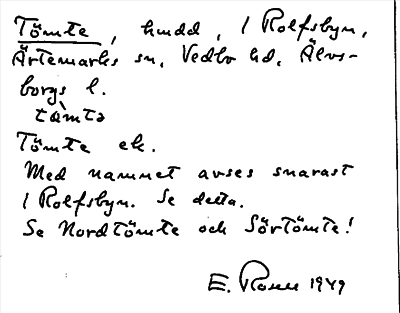 Tömte, hmdd, 1 Rolfsbyn,
Ärtemarks sn, Vedbo hd, Älvs-
borgs l.
tämtə
Tömte ek.
Med namnet avses snarast
1 Rolfsbyn. Se detta.
Se Nordtömte och Sörtömte!
E. Rosell 1949